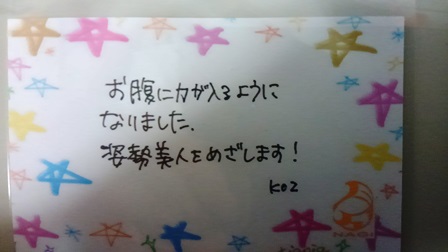 お腹に力が入るように
なりました.
姿勢美人をめざします!
KOZ
NAGI